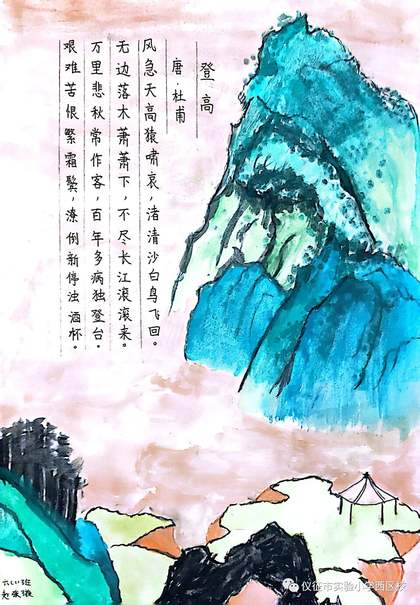 登高
唐·杜甫
风急天高猿啸哀，渚清沙白鸟飞回。
无边落木萧萧下，不尽长江滚滚来。
万里悲秋常作客，百年多病独登台。
艰难苦恨繁霜鬓，潦倒新停浊酒杯。
六(1)班
仪征市实验小学西区校